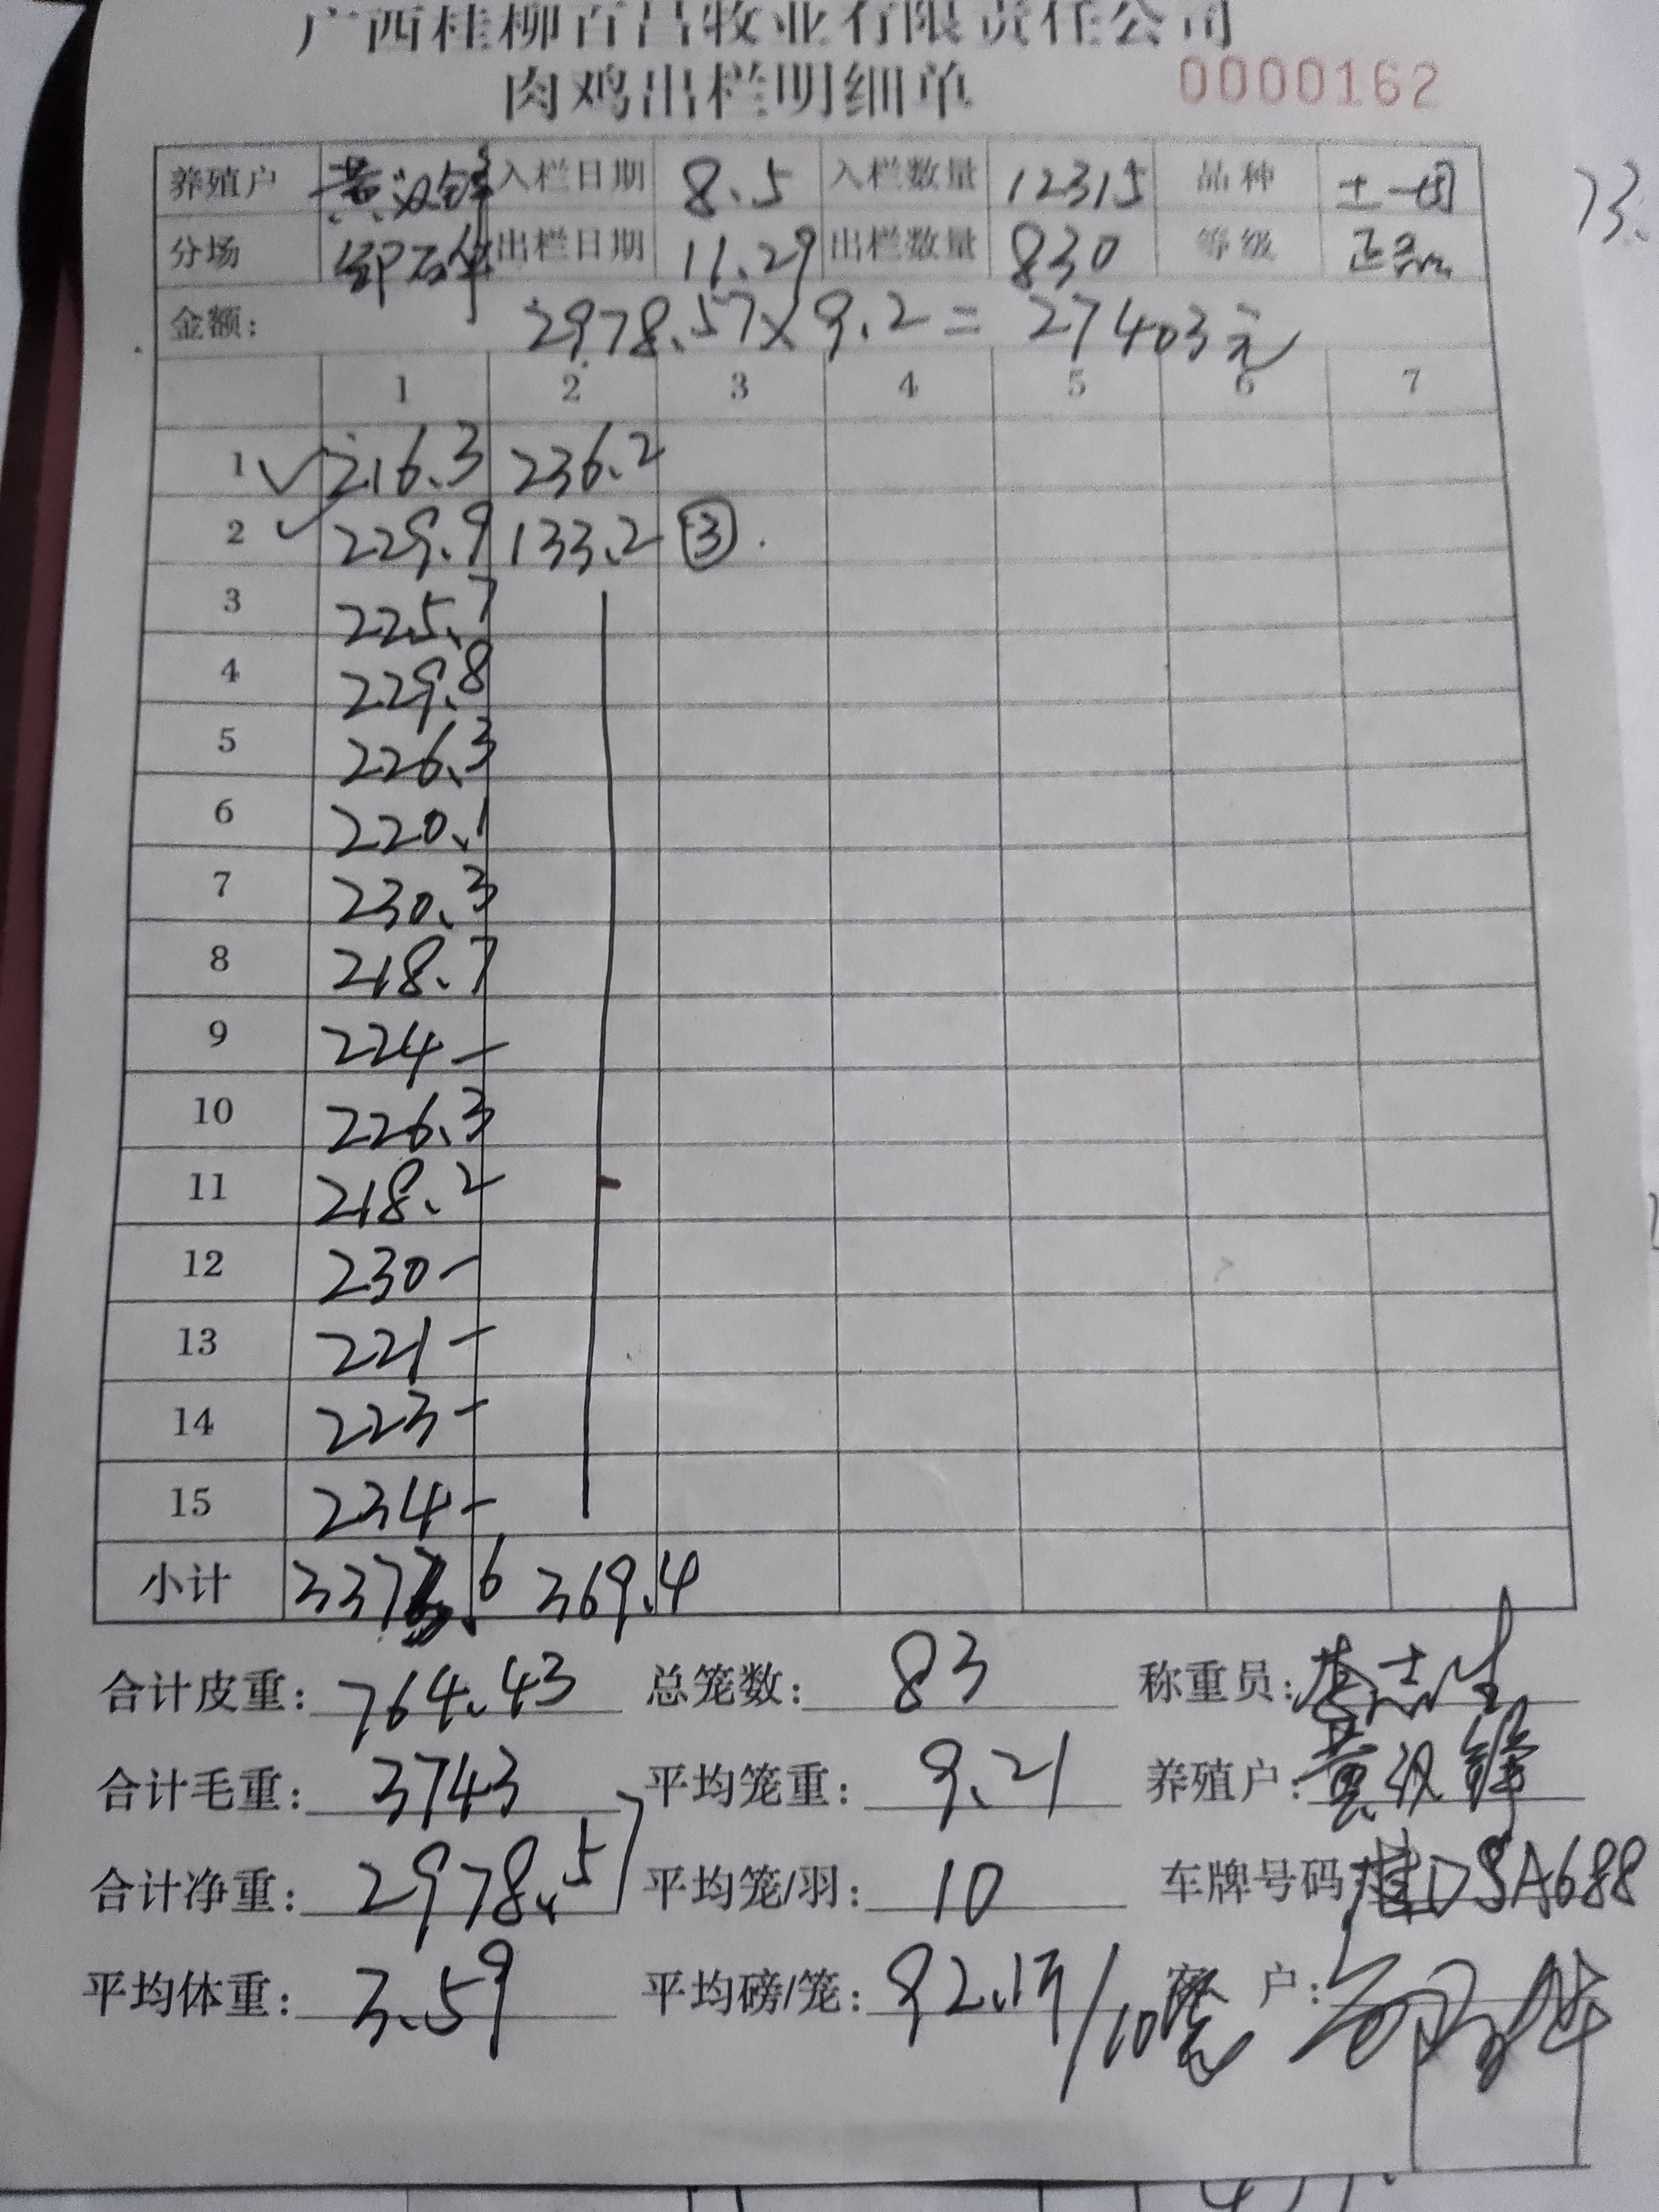 广西桂柳百昌牧业有限责任公司
肉鸡出栏明细单 0000162
养殖户 黄汉锋 入栏日期 8.5 入栏数量 12315 品种 土一
分场 出栏日期 11.29 出栏数量 830 等级 正品
金额: 2978.57×9.2=27403元
1 2 3 4 5 6 7
1 216.3 236.2
2 229.9 133.2 ③
3 225.7
4 229.8
5 226.3
6 220.1
7 230.3
8 218.7
9 224-
10 226.3
11 218.2
12 230-
13 221-
14 223-
15 234-
小计 3373.6 369.4
合计皮重: 764.43 总笼数: 83 称重员:
合计毛重: 3743 平均笼重: 9.21 养殖户: 黄汉锋
合计净重: 2978.57 平均笼/羽: 10 车牌号码 桂DSA688
平均体重: 3.59 平均磅/笼: 92.13/10 客户:
73.